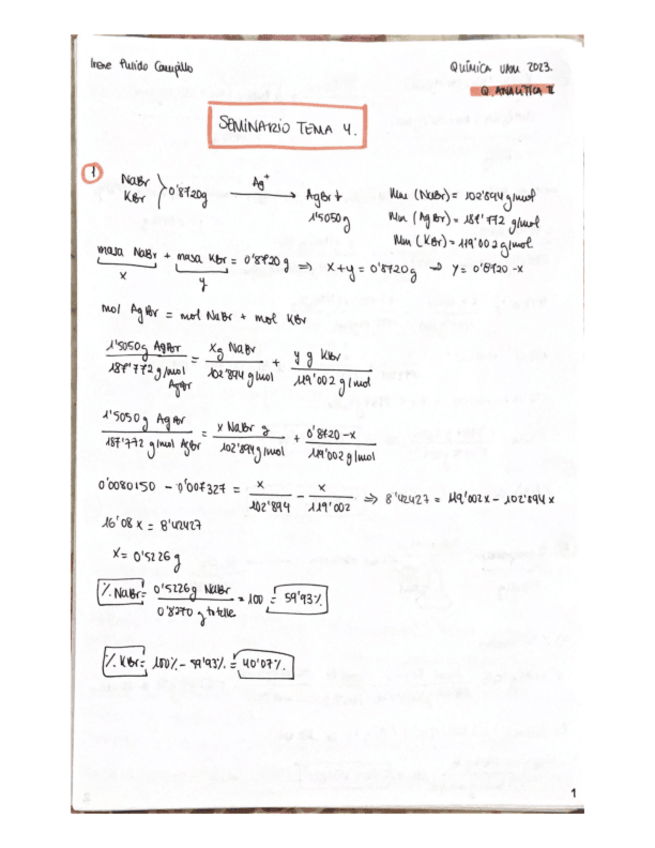 Irene Pulido Campillo
QUÍMICA UAM 2023.
Q. ANALÍTICA II
SEMINARIO TEMA 4.
1
NaBr
KBr
0'8720g
Ag⁺
→ AgBr ↓
1'5050 g
Mm (NaBr) = 102'894 g/mol
Mm (AgBr) = 187'772 g/mol
Mm (KBr) = 119'002 g/mol
masa NaBr + masa KBr = 0'8720 g ⇒ x+y = 0'8720g → y = 0'8720 -x
x
y
mol AgBr = mol NaBr + mol KBr
1'5050g AgBr / 187'772 g/mol AgBr = x g NaBr / 102'894 g/mol + y g KBr / 119'002 g/mol
1'5050 g AgBr / 187'772 g/mol AgBr = x NaBr g / 102'894 g/mol + 0'8720 -x / 119'002 g/mol
0'0080150 - 0'007327 = x / 102'894 - x / 119'002 ⇒ 8'42427 = 119'002x - 102'894 x
16'08 x = 8'42427
x = 0'5226 g
%. NaBr = 0'5226g NaBr / 0'8270 g totale = 100 = 59'93%.
%. KBr = 100%. - 59'93%. = 40'07%.
1